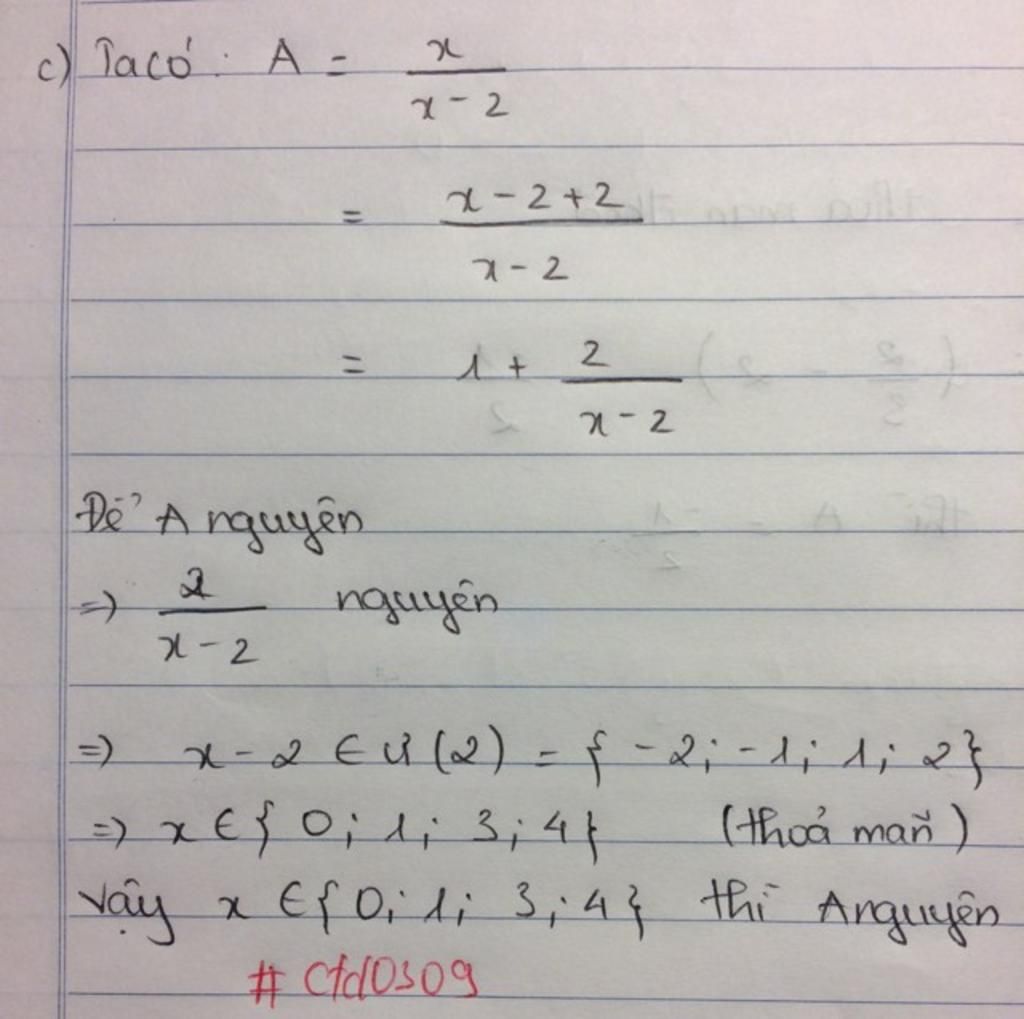 c) Ta có: A = x / (x - 2)
= (x - 2 + 2) / (x - 2)
= 1 + 2 / (x - 2)
Để A nguyên
=> 2 / (x - 2) nguyên
=> x - 2 ∈ Ư(2) = { -2; -1; 1; 2}
=> x ∈ { 0; 1; 3; 4} (thoả mãn)
Vậy x ∈ { 0; 1; 3; 4} thì A nguyên
# Ctd0309